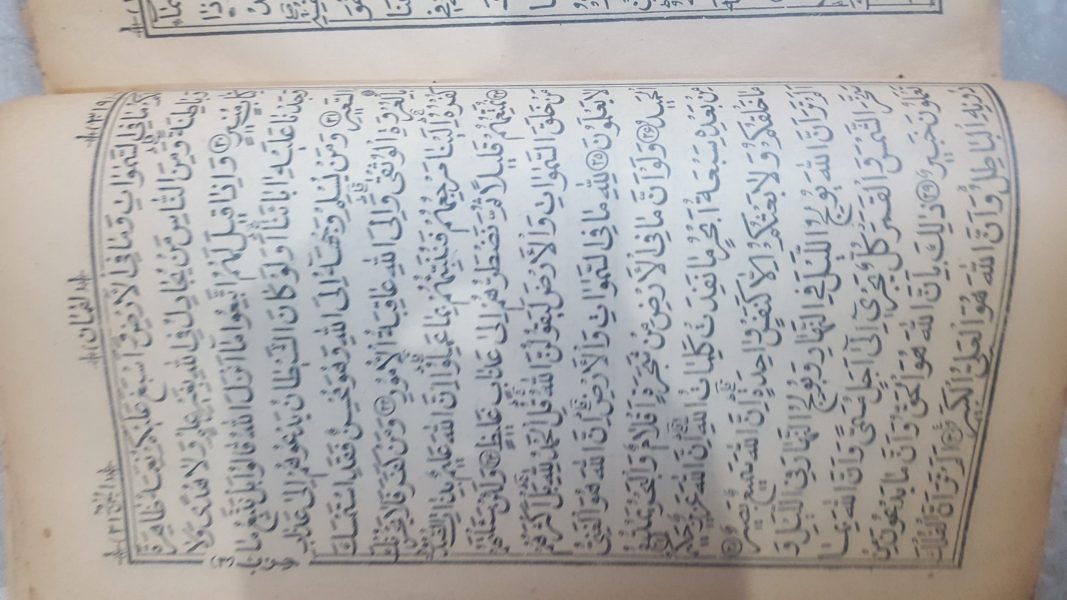 (٣١٩)
لقمان
(٢١)
لَكُمْ مَّا فِى السَّمٰوٰتِ وَمَا فِى الْاَرْضِ وَاَسْبَغَ عَلَيْكُمْ نِعَمَهٗ ظَاهِرَةً
وَّبَاطِنَةً وَمِنَ النَّاسِ مَنْ يُّجَادِلُ فِى اللّٰهِ بِغَيْرِ عِلْمٍ وَّلَا هُدًى وَّلَا
كِتَابٍ مُّنِيْرٍ ﴿٢٠﴾ وَاِذَا قِيْلَ لَهُمُ اتَّبِعُوْا مَا اَنْزَلَ اللّٰهُ قَالُوْا بَلْ نَتَّبِعُ مَا
وَجَدْنَا عَلَيْهِ اٰبَاءَنَا اَوَلَوْ كَانَ الشَّيْطَانُ يَدْعُوْهُمْ اِلٰى عَذَابِ
السَّعِيْرِ ﴿٢١﴾ وَمَنْ يُّسْلِمْ وَجْهَهٗ اِلَى اللّٰهِ وَهُوَ مُحْسِنٌ فَقَدِ اسْتَمْسَكَ
بِالْعُرْوَةِ الْوُثْقٰى وَاِلَى اللّٰهِ عَاقِبَةُ الْاُمُوْرِ ﴿٢٢﴾ وَمَنْ كَفَرَ فَلَا يَحْزُنْكَ
كُفْرُهٗ اِلَيْنَا مَرْجِعُهُمْ فَنُنَبِّئُهُمْ بِمَا عَمِلُوْا اِنَّ اللّٰهَ عَلِيْمٌ بِذَاتِ الصُّدُوْرِ
﴿٢٣﴾ نُمَتِّعُهُمْ قَلِيْلًا ثُمَّ نَضْطَرُّهُمْ اِلٰى عَذَابٍ غَلِيْظٍ ﴿٢٤﴾ وَلَئِنْ سَاَلْتَهُمْ
مَّنْ خَلَقَ السَّمٰوَاتِ وَالْاَرْضَ لَيَقُوْلُنَّ اللّٰهُ قُلِ الْحَمْدُ لِلّٰهِ بَلْ اَكْثَرُهُمْ
لَا يَعْلَمُوْنَ ﴿٢٥﴾ لِلّٰهِ مَا فِى السَّمٰوَاتِ وَالْاَرْضِ اِنَّ اللّٰهَ هُوَ الْغَنِيُّ
الْحَمِيْدُ ﴿٢٦﴾ وَلَوْ اَنَّ مَا فِى الْاَرْضِ مِنْ شَجَرَةٍ اَقْلَامٌ وَّالْبَحْرُ يَمُدُّهٗ
مِنْ بَعْدِهٖ سَبْعَةُ اَبْحُرٍ مَّا نَفِدَتْ كَلِمَاتُ اللّٰهِ اِنَّ اللّٰهَ عَزِيْزٌ حَكِيْمٌ ﴿٢٧﴾
مَا خَلْقُكُمْ وَلَا بَعْثُكُمْ اِلَّا كَنَفْسٍ وَّاحِدَةٍ اِنَّ اللّٰهَ سَمِيْعٌ بَصِيْرٌ ﴿٢٨﴾
اَلَمْ تَرَ اَنَّ اللّٰهَ يُوْلِجُ الَّيْلَ فِى النَّهَارِ وَيُوْلِجُ النَّهَارَ فِى الَّيْلِ وَ
سَخَّرَ الشَّمْسَ وَالْقَمَرَ كُلٌّ يَّجْرِىْ اِلٰى اَجَلٍ مُّسَمًّى وَّاَنَّ اللّٰهَ بِمَا
تَعْمَلُوْنَ خَبِيْرٌ ﴿٢٩﴾ ذٰلِكَ بِاَنَّ اللّٰهَ هُوَ الْحَقُّ وَاَنَّ مَا يَدْعُوْنَ مِنْ
دُوْنِهِ الْبَاطِلُ وَاَنَّ اللّٰهَ هُوَ الْعَلِيُّ الْكَبِيْرُ ﴿٣٠﴾ اَلَمْ تَرَ اَنَّ الْفُلْكَ